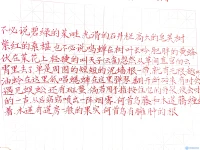 不必说碧绿的菜畦,光滑的石井栏,高大的皂荚树
紫红的桑椹 也不必说鸣蝉在树叶长吟,肥胖的黄蜂
伏在菜花上,轻捷的叫天子(云雀)忽然从草间直窜向云
霄里去了.单是周围的短短的泥墙根一带,就有无限趣
油蛉在这里低唱,蟋蟀们在这里弹琴.翻开断砖来,有时会
遇见蜈蚣;还有斑蝥,倘若用手指按住它的脊梁,便会
的一声,从后窍喷出一阵烟雾.何首乌藤和木莲藤缠络
着,木莲有莲房一般的果实,何首乌有臃肿的根